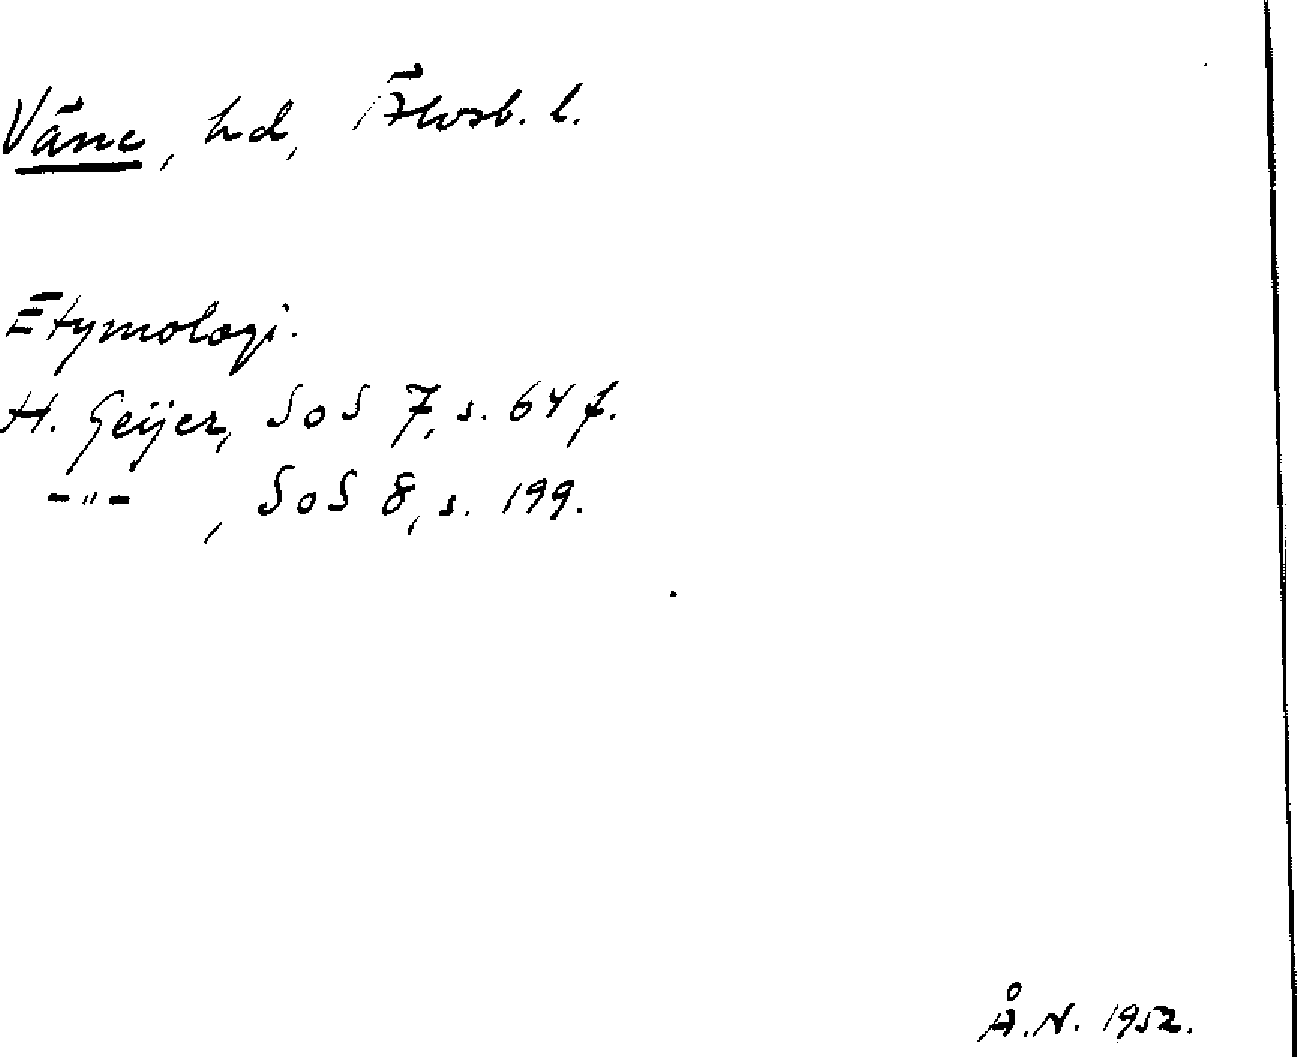 Väne, hd, Älvsb. l.
Etymologi.
H. Geijer, SoS 7, s. 64 f.
-"- , SoS 8, s. 199.
Å.N. 1952.